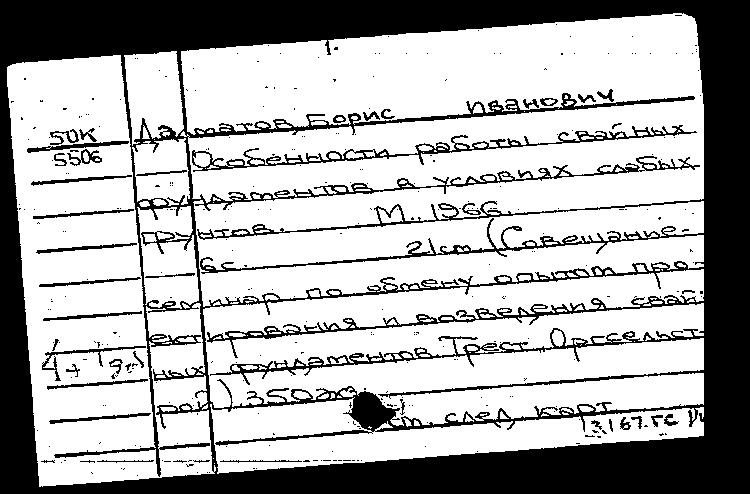 1.
50К Далматов, Борис Иванович
5506 Особенности работы свайных
фундаментов в условиях слабых
грунтов. М., 1966.
6 с. 21 cm. (Совещание-
семинар по обмену опытом про-
ектирования и возведения свай-
ных фундаментов. Трест „Оргсельст-
рой) 350 экз.
см. след. карт.